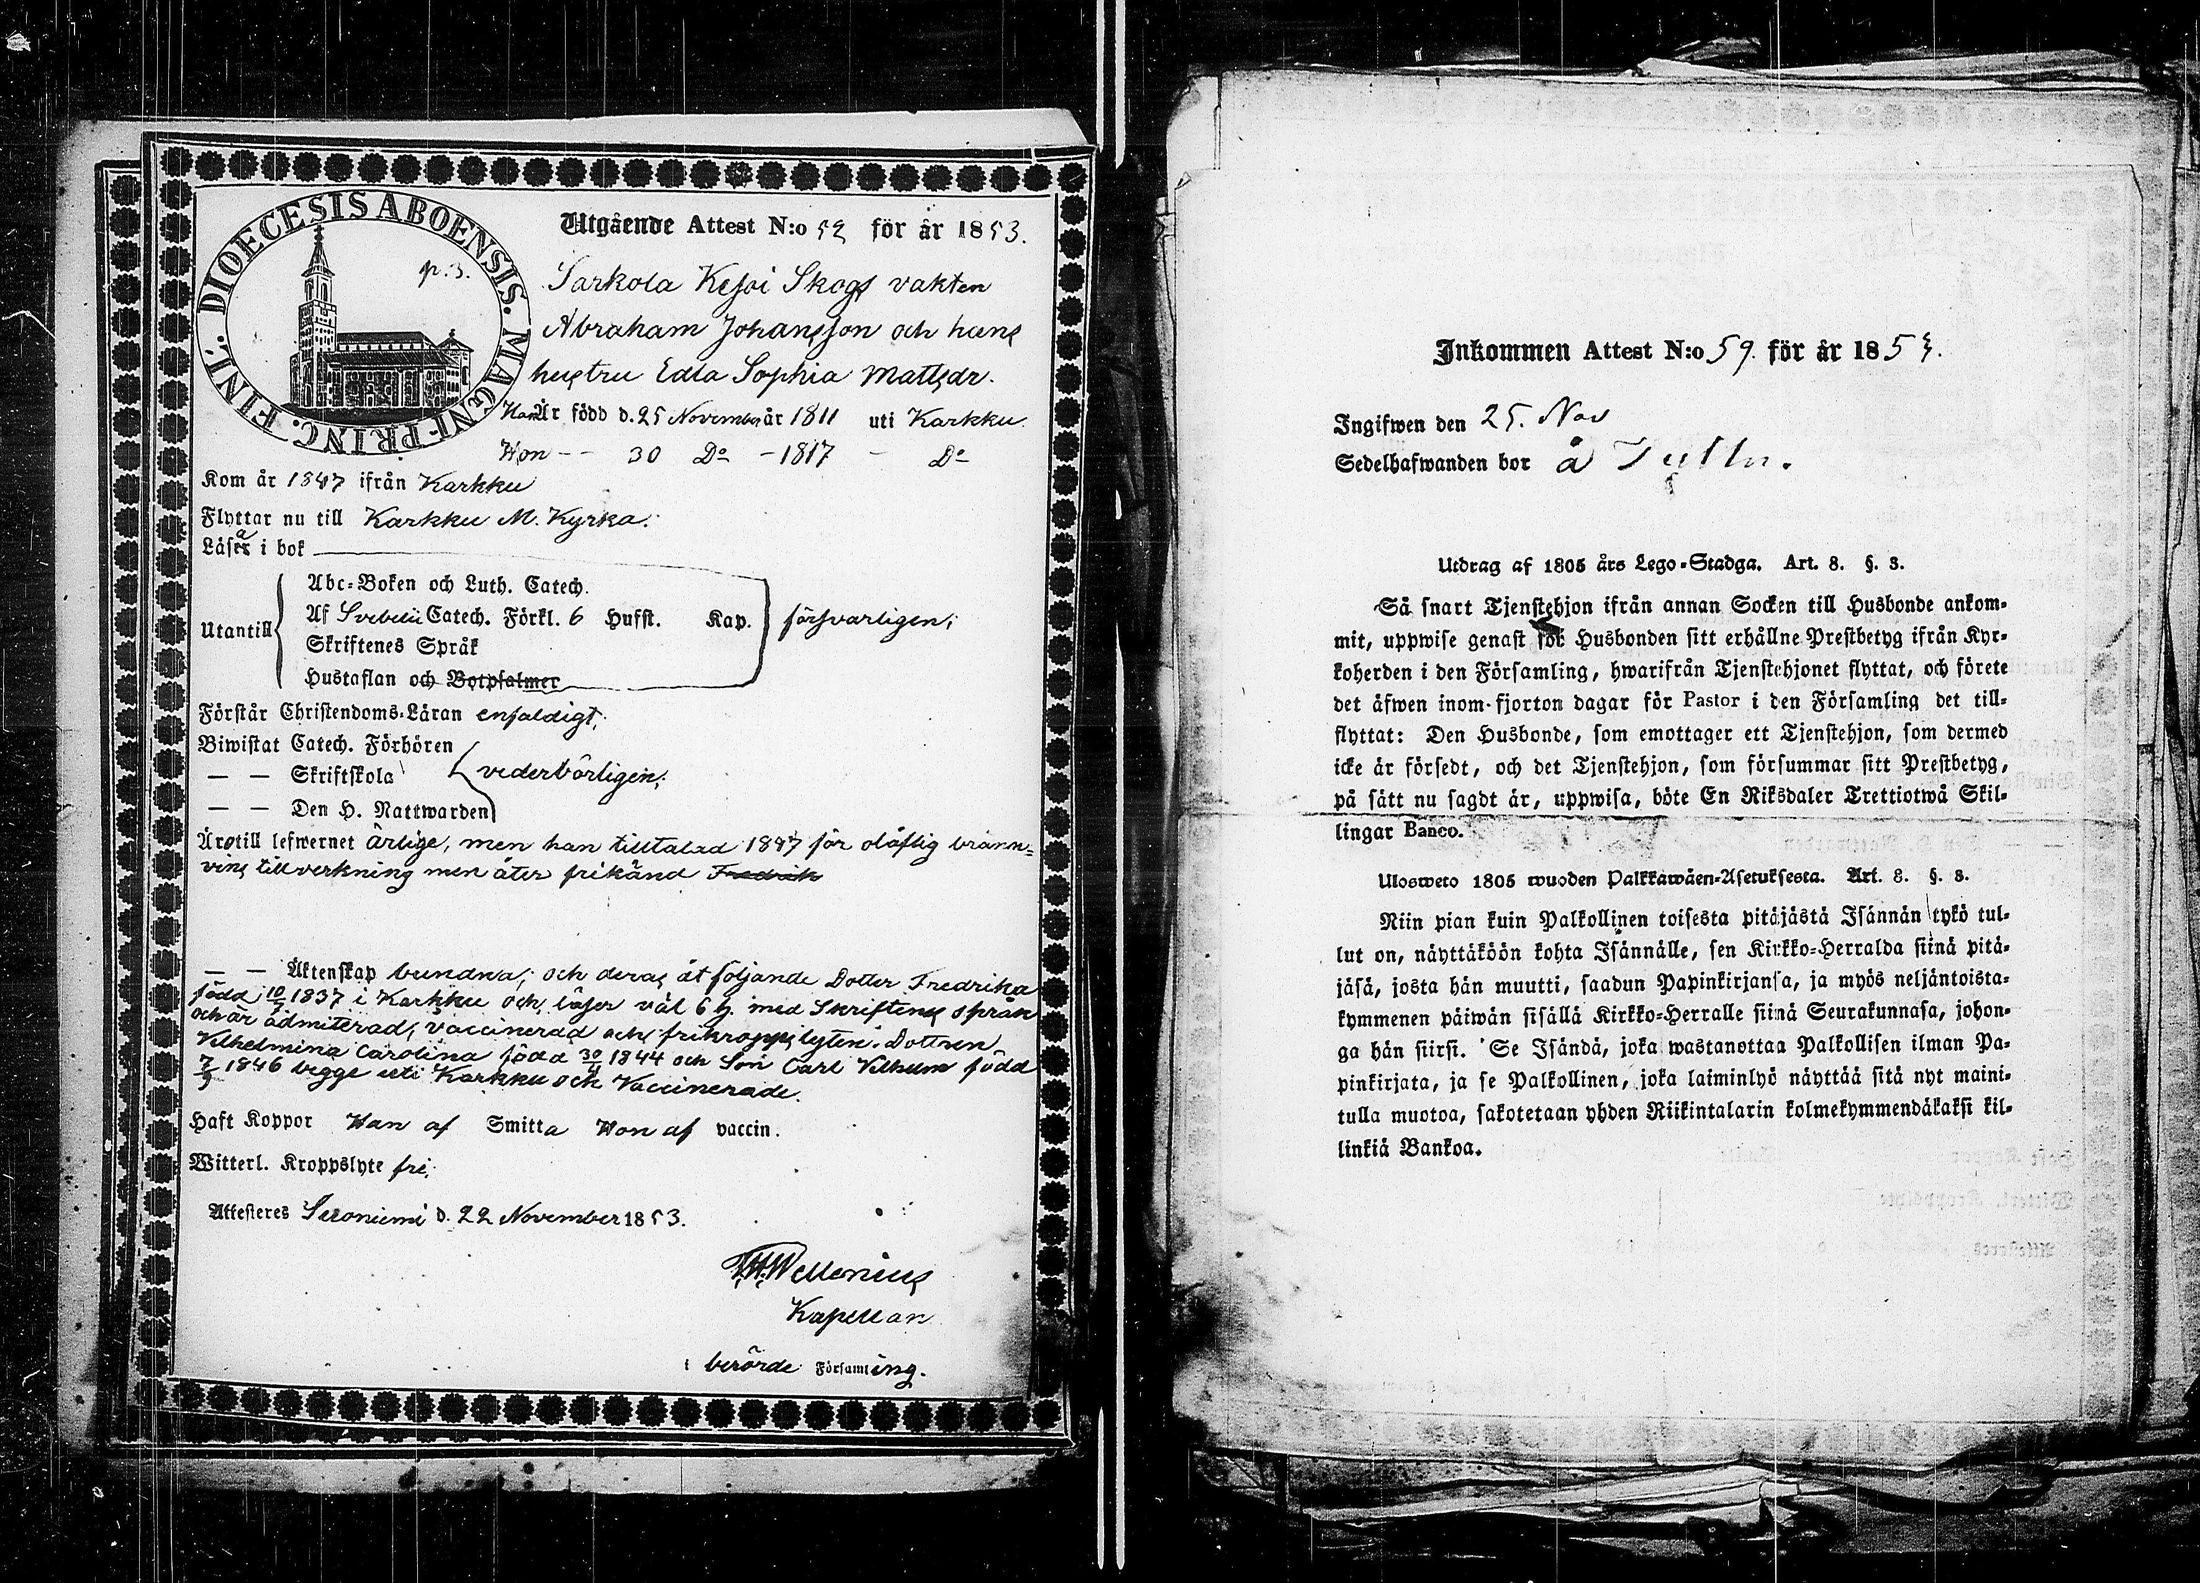 DIOECESIS ABOENSIS. MAGNI-PRINC. FINL.
p. 3.
Utgående Attest N:o 52 för år 1853.
Sarkola Keßoi Skogs vakten
Abraham Johansson och hans
hustru Edla Sophia Mattsdr.
Han Är född d. 25 November år 1811 uti Karkku
Hon - - 30 Do - 1817 - Do
Kom år 1847 ifrån Karkku
Flyttar nu till Karkku M. Kyrka.
Läsa i bok
Utantill
Abc-Boken och Luth. Catech.
Af Svebelii Catech. Förkl. 6 Hufst. Kap.
försvarligen;
Skriftenes Språk
Hustaflan och Botpsalmer
Förstår Christendoms-Läran enfaldigt;
Biwistat Catech. Förhören
— — Skriftskola
vederbörligen;
— — Den H. Nattwarden
Äro till lefwernet ärlige, men han tilltalad 1847 för olåflig bränn-
vins tillverkning men åter frikänd Fredrik
— — Äktenskap bundna; och deras åt följande Dotter Fredrika
född 10/7 1837 i Karkku och läser väl 6 h. med Skriftens språk
och är admiterad, vaccinerad och frikroppslyten. Dottren
Vilhelmina Carolina född 30/4 1844 och Son Carl Vilhelm född
7/9 1846 begge uti Karkku och Vaccinerade.
Haft Koppor Han af Smitta Hon af vaccin.
Witterl. Kroppslyte fri;
Attesteres Seroniemi d. 22 November 1853.
Wellenius
Kapellan
i berörde Församling.
Inkommen Attest N:o 59. för år 1853.
Ingifwen den 25. Nov
Sedelhafwanden bor å
Utdrag af 1805 års Lego-Stadga. Art. 8. §. 3.
Så snart Tjenstehjon ifrån annan Socken till Husbonde ankom-
mit, uppwise genast för Husbonden sitt erhållne Prestbetyg ifrån Kyr-
koherden i den Församling, hwarifrån Tjenstehjonet flyttat, och förete
det äfwen inom fjorton dagar för Pastor i den Församling det till-
flyttat: Den Husbonde, som emottager ett Tjenstehjon, som dermed
icke är försedt, och det Tjenstehjon, som försummar sitt Prestbetyg,
på sätt nu sagdt är, uppwisa, böte En Riksdaler Trettiotwå Skil-
lingar Banco.
Ulosweto 1805 wuoden Palkkawäen-Asetuksesta. Art. 8. §. 3.
Niin pian kuin Palkollinen toisesta pitäjästä Isännän tykö tul-
lut on, näyttäköön kohta Isännälle, sen Kirkko-Herralda siinä pitä-
jäsä, josta hän muutti, saadun Papinkirjansa, ja myös neljäntoista-
kymmenen päiwän sisällä Kirkko-Herralle siinä Seurakunnasa, johon-
ga hän siirsi. Se Isändä, joka wastanottaa Palkollisen ilman Pa-
pinkirjata, ja se Palkollinen, joka laiminlyö näyttää sitä nyt maini-
tulla muotoa, sakotetaan yhden Riikintalarin kolmekymmendäkaksi kil-
linkiä Bankoa.